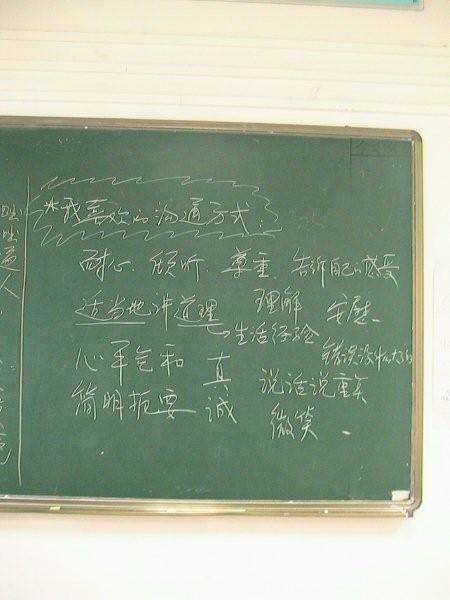 *我喜欢的沟通方式:
耐心、倾听、尊重、告诉自己感受
适当地讲道理 理解 安慰
生活经验
心平气和 真诚 错误没什么大不了
说话说重点
简明扼要 微笑